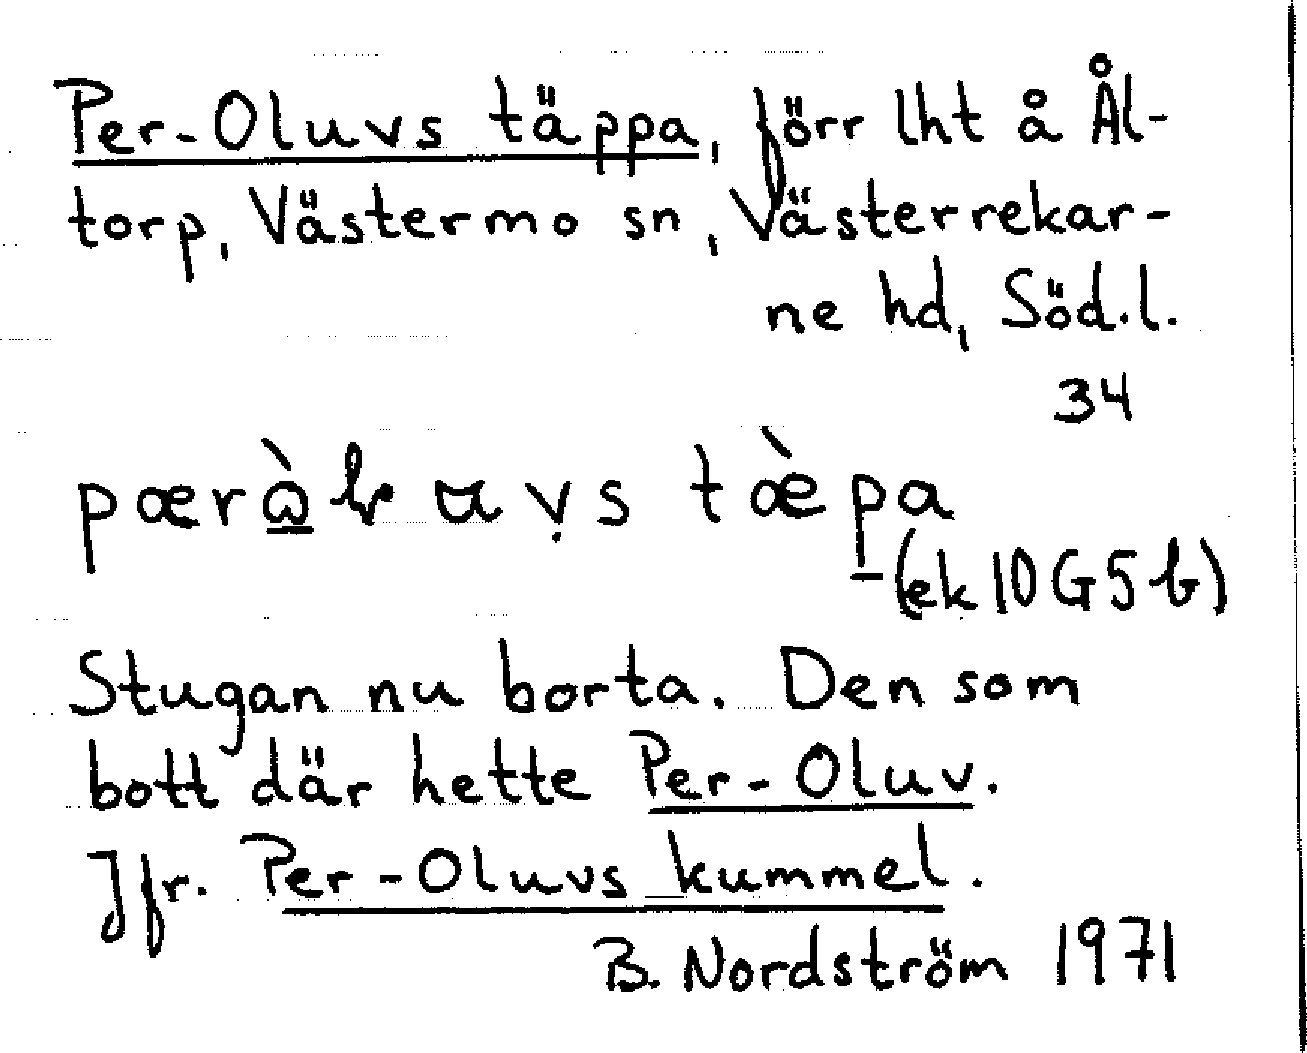 Per-Oluvs täppa, förr lht å Ål-
torp, Västermo sn, Västerrekar-
ne hd, Söd.l.
34
tæ̀pa
(ek 10 G 5 b)
Stugan nu borta. Den som
bott där hette Per-Oluv.
Jfr. Per-Oluvs kummel.
B. Nordström 1971